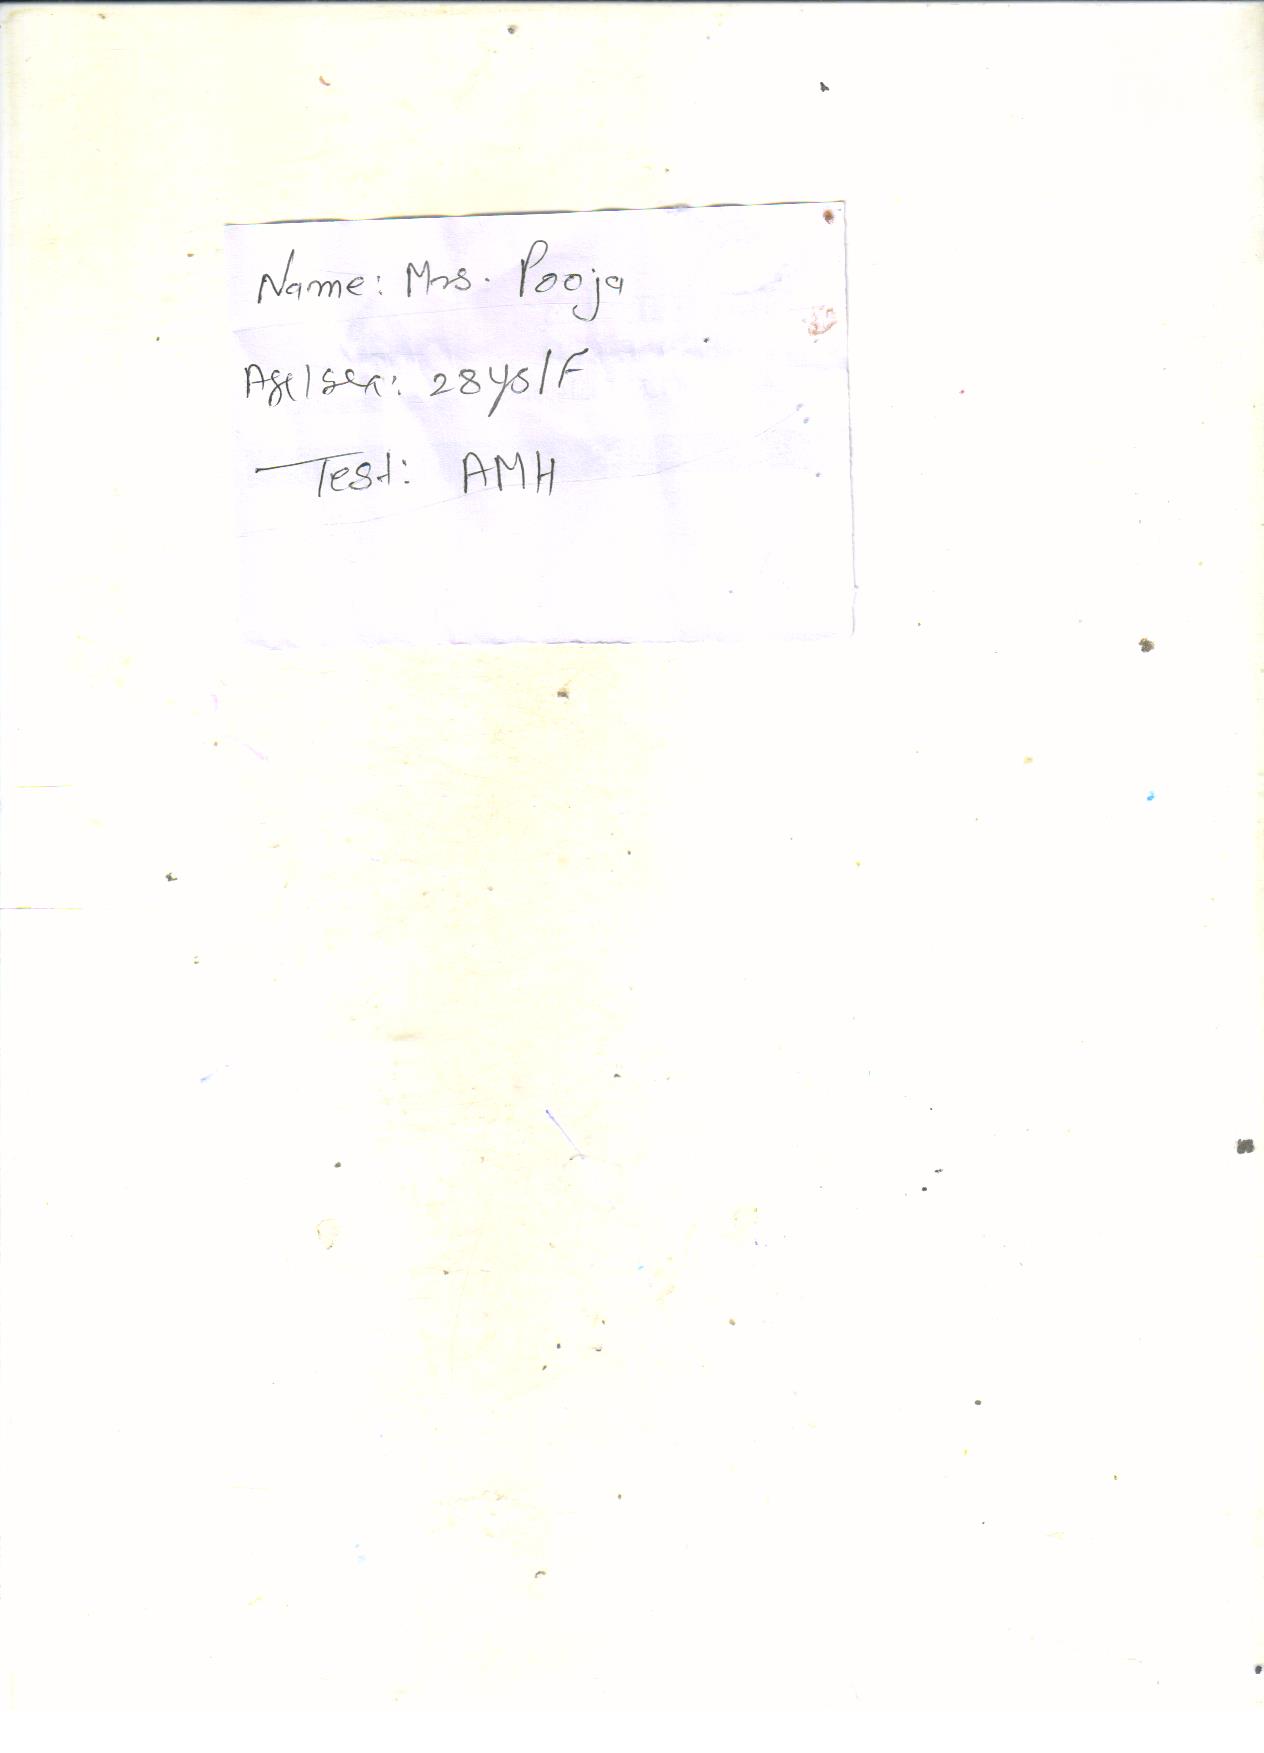 Name: Mrs. Pooja
Age/Sex: 28ys/F
Test: AMH